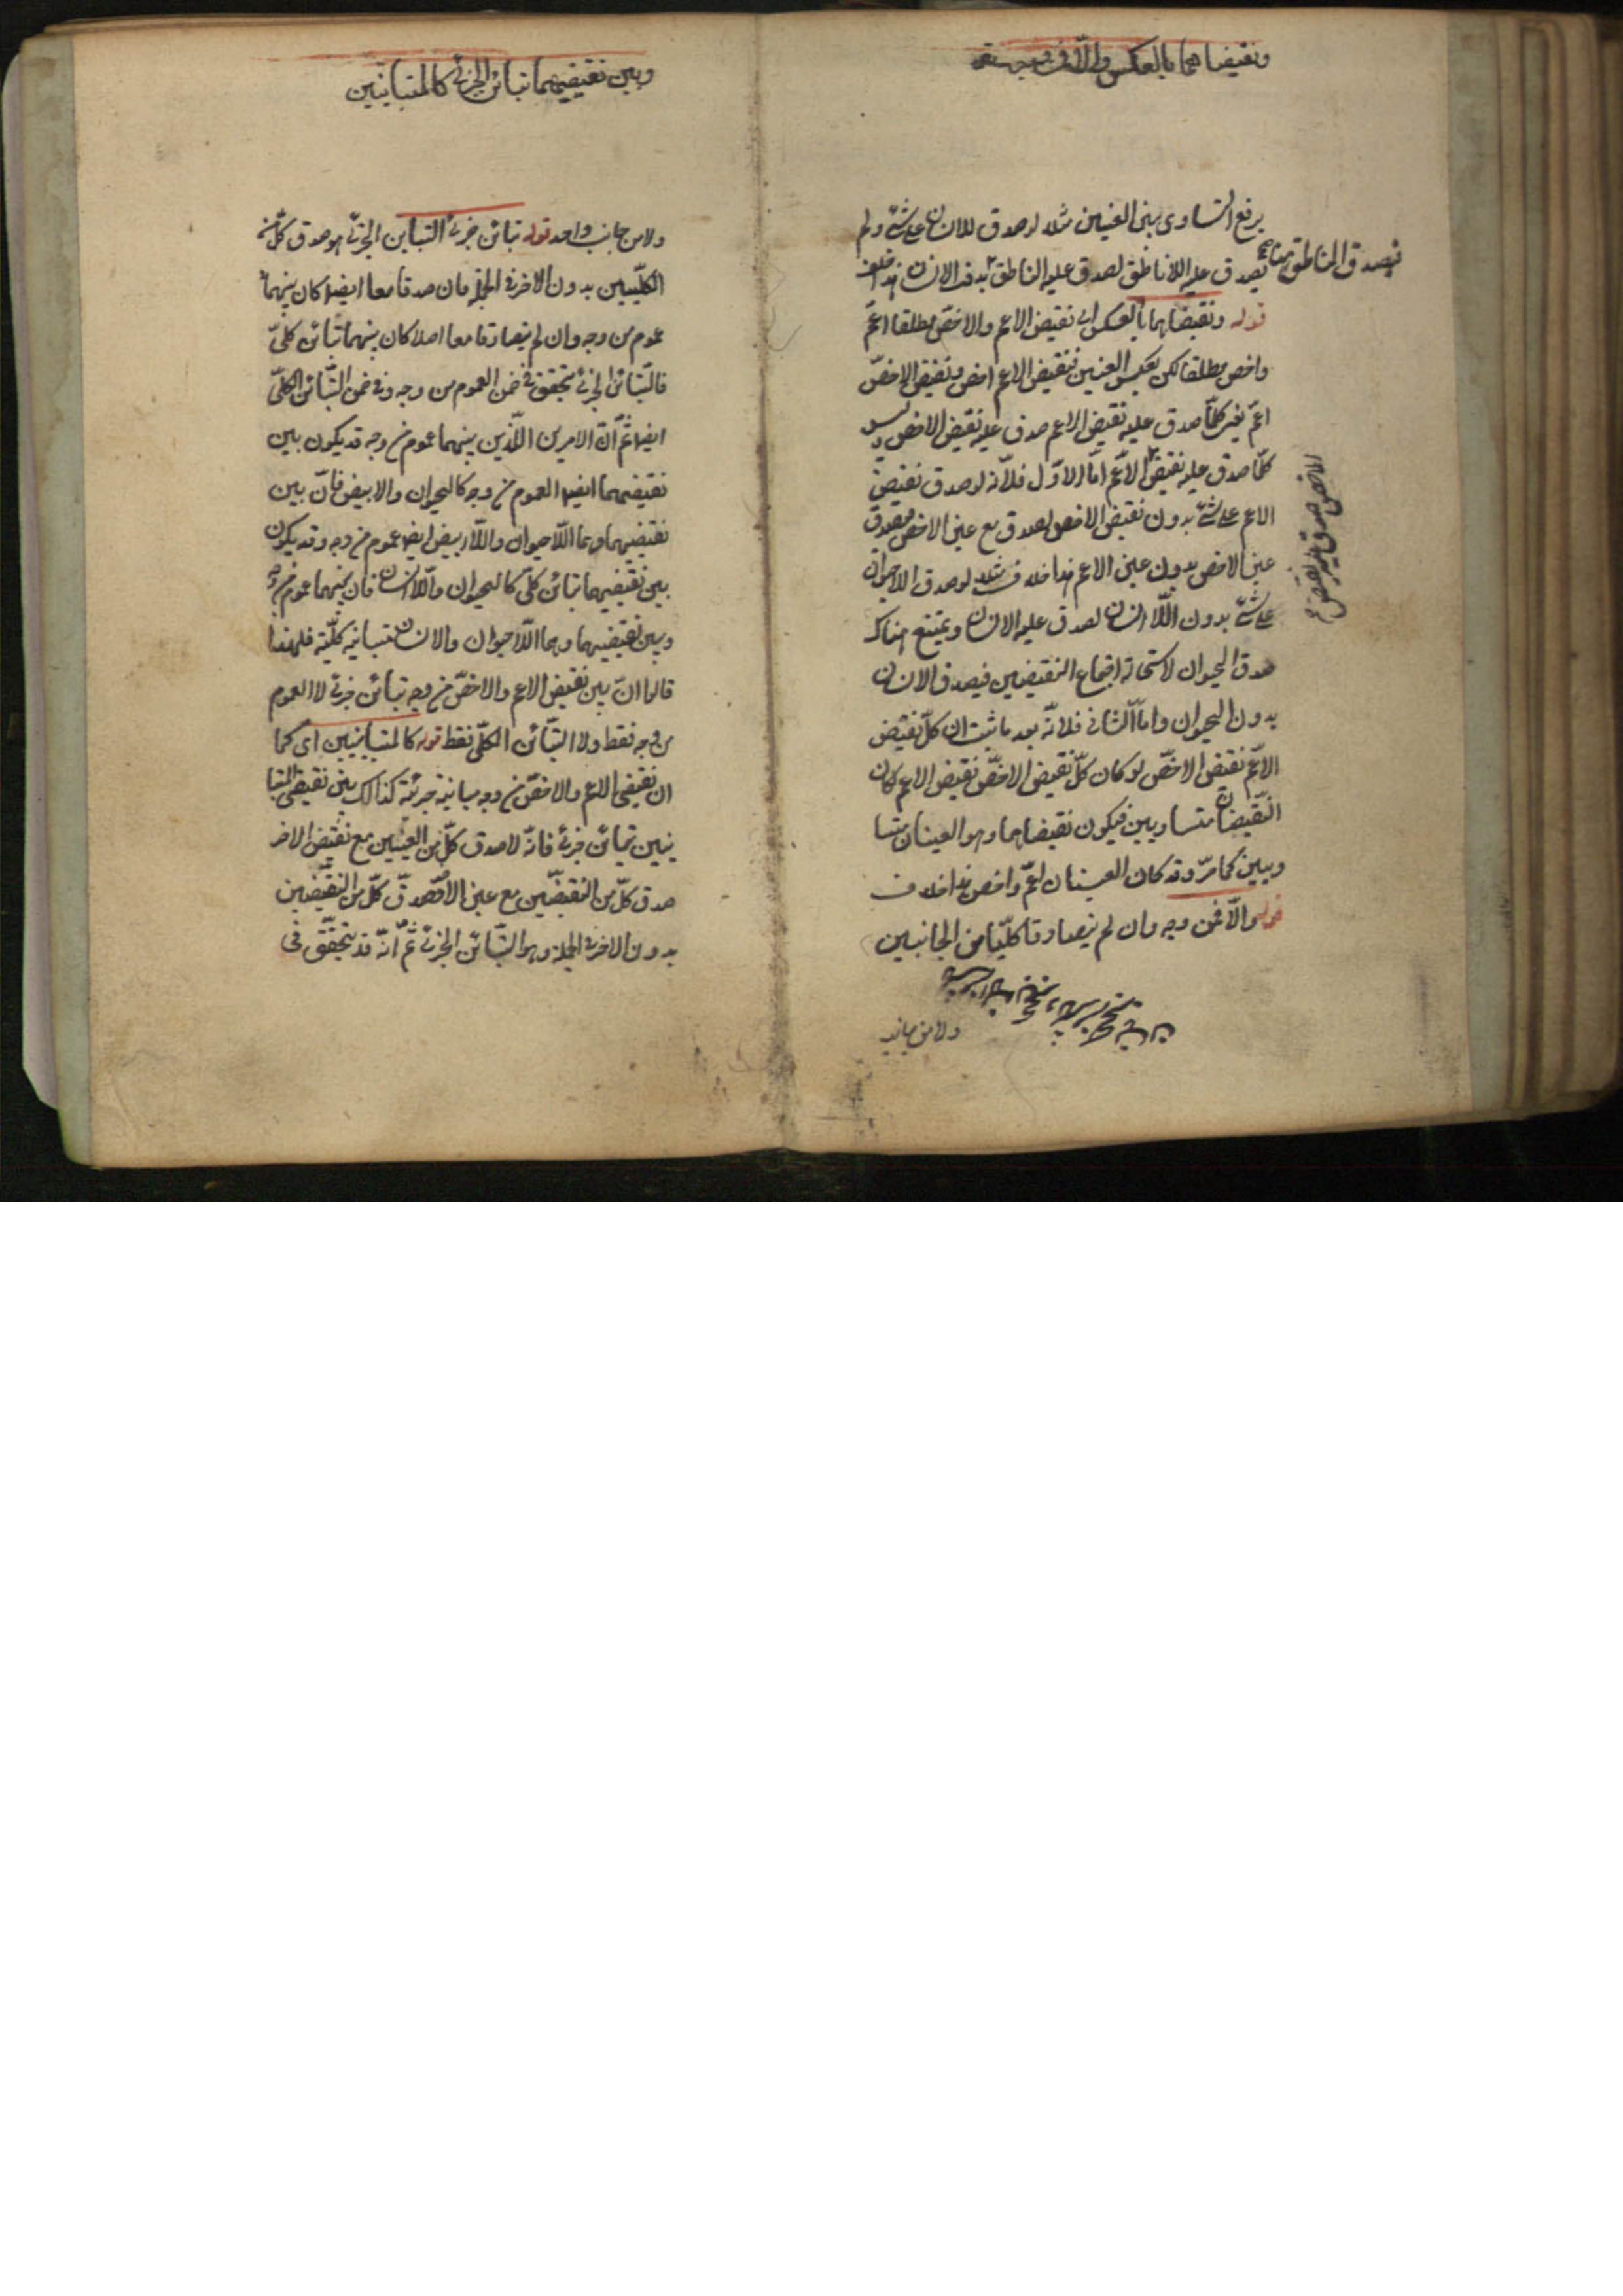 ونقيضاهما بالعكس والا فمن وجه
يرفع التساوى بين العينين مثلا لو صدق اللاانسان على شئ ولم
يصدق عليه اللاناطق لصدق عليه الناطق بدون الانسان هذا خلف
فيصدق الناطق ههنا
قوله ونقيضاهما بالعكس اى نقيض الاعم والاخص مطلقا اعم
واخص مطلقا لكن بعكس العينين فنقيض الاعم اخص ونقيض الاخص
اعم يعنى كلما صدق عليه نقيض الاعم صدق عليه نقيض الاخص وليس
كلما صدق عليه نقيض الاعم اما الاول فلانه لو صدق نقيض
الاخص صدق عليه نقيض
الاعم على شئ بدون نقيض الاخص لصدق مع عين الاخص فيصدق
عين الاخص بدون عين الاعم هذا خلف مثلا لو صدق اللاحيوان
على شئ بدون اللاانسان لصدق عليه الانسان ويمتنع هناك
صدق الحيوان لاستحالة اجتماع النقيضين فيصدق الانسان
بدون الحيوان واما الثانى فلانه بعد ما ثبت ان كل نقيض
الاعم نقيض الاخص لو كان كل نقيض الاخص نقيض الاعم لكان
النقيضان متساويين فيكون نقيضاهما وهو العينان متسا
ويين كما مر وقد كان العينان اعم واخص هذا خلف
قوله والا فمن وجه وان لم يتصادقا كليا من الجانبين
ولا من جانب
وبين نقيضيهما تباين جزئى كالمتباينين
ولا من جانب واحد قوله تباين جزئى التباين الجزئى هو صدق كل من
الكليين بدون الاخر فى الجملة فان صدقا معا ايضا كان بينهما
عموم من وجه وان لم يتصادقا معا اصلا كان بينهما تباين كلى
فالتباين الجزئى يتحقق فى ضمن العموم من وجه وفى ضمن التباين الكلى
ايضا ثم ان الامرين اللذين بينهما عموم من وجه قد يكون بين
نقيضيهما ايضا العموم من وجه كالحيوان والابيض فان بين
نقيضيهما وهما اللاحيوان واللاابيض ايضا عموم من وجه وقد يكون
بين نقيضيهما تباين كلى كالحيوان واللاانسان فان بينهما عموم من وجه
وبين نقيضيهما وهما اللاحيوان والانسان مباينة كلية فلهذا
قالوا ان بين نقيضى الاعم والاخص من وجه تباين جزئى لا العموم
من وجه فقط ولا التباين الكلى فقط قوله كالمتباينين اى كما
ان نقيضى الاعم والاخص من وجه مباينة جزئية كذالك بين نقيضى المتبا
ينين تباين جزئى فانه لا صدق كل من العينين مع نقيض الاخر
صدق كل من النقيضين مع عين الاخر فصدق كل من النقيضين
بدون الاخر فى الجملة وهو التباين الجزئى ثم انه قد يتحقق فى